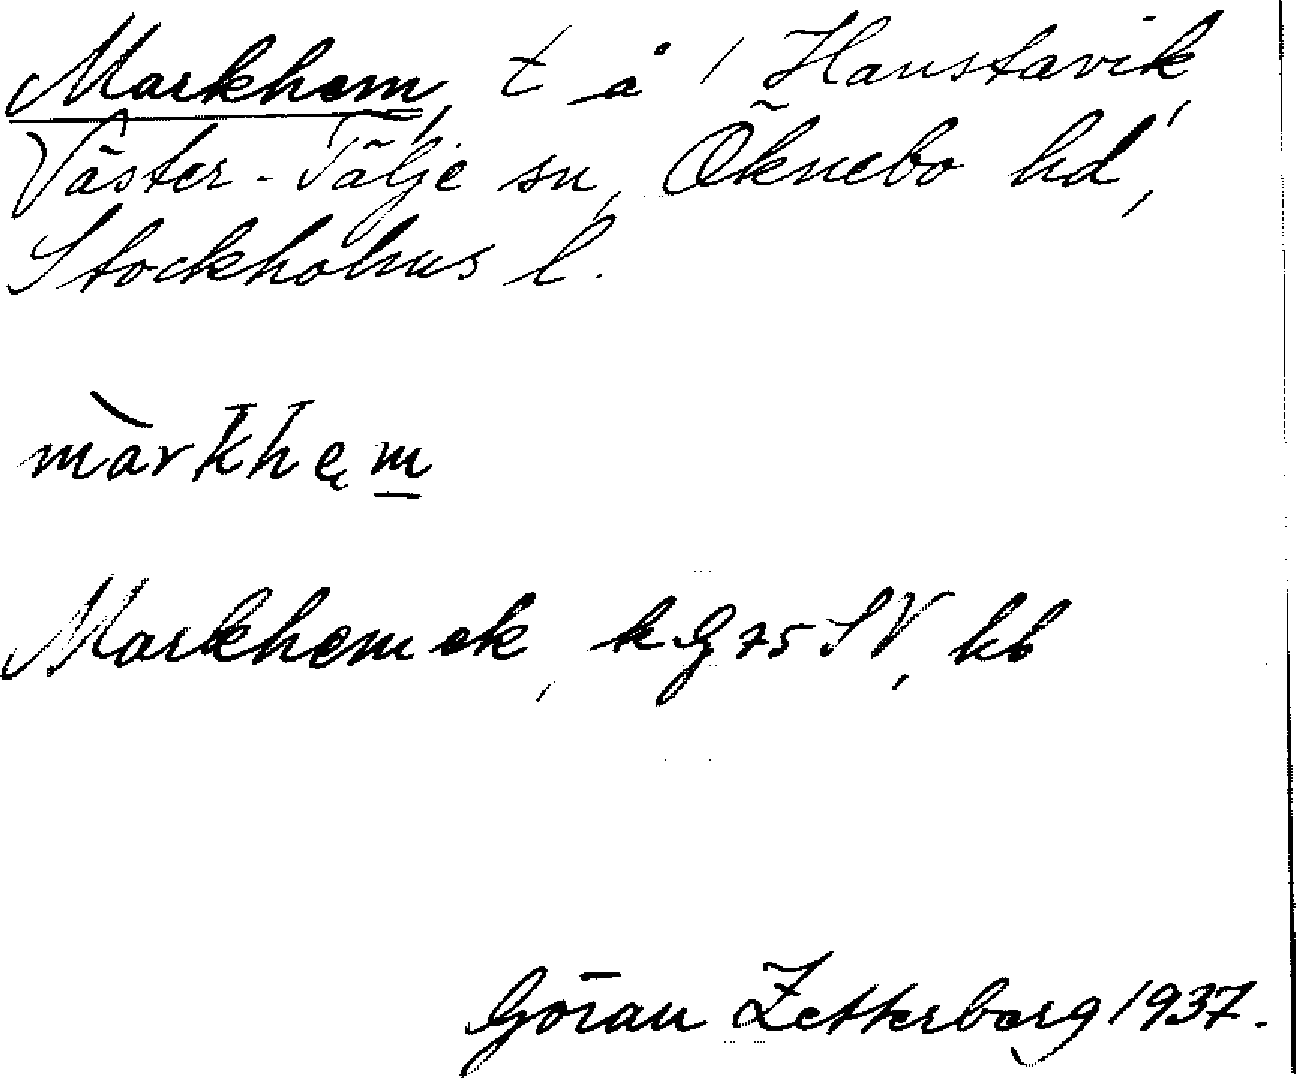 Markhem, t å 1 Hanstavik,
Väster-Tälje sn, Öknebo hd,
Stockholms l.
màrkhęm
Markhem ek, kG 75 SV, kb
Göran Zetterborg 1937.